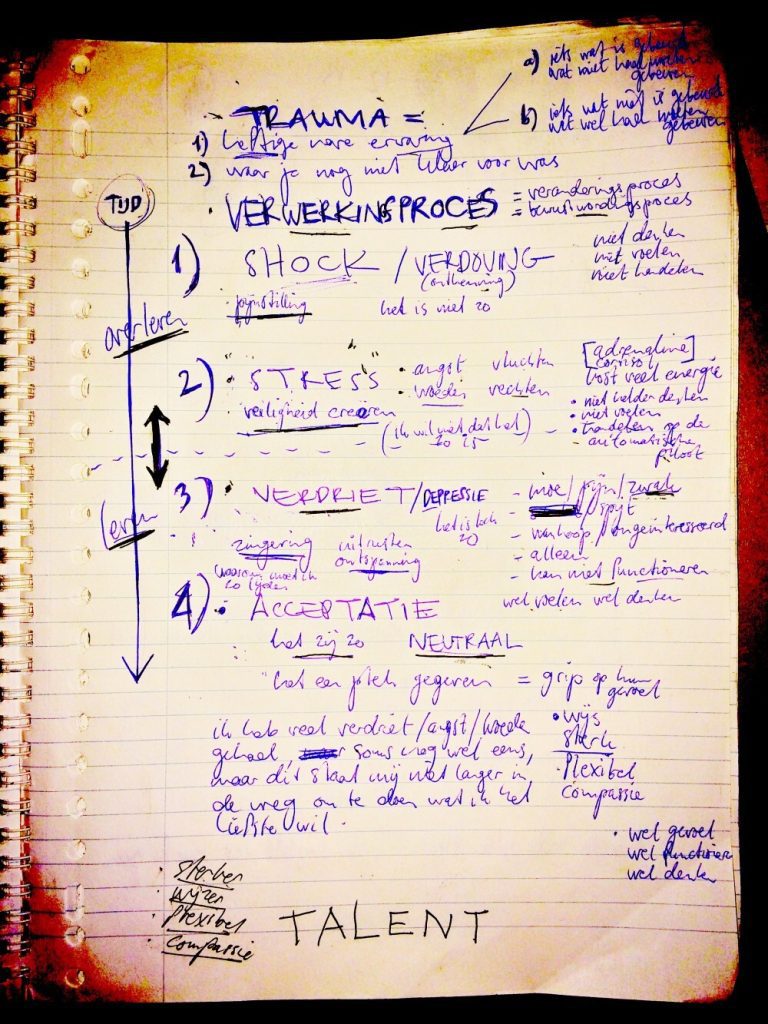 a) iets wat is gebeurd
wat niet had moeten
gebeuren
b) iets wat niet is gebeurd
wat wel had moeten
gebeuren
TRAUMA =
1) heftige nare ervaring
2) waar je nog niet klaar voor was
TIJD
• VERWERKINSPROCES = veranderingsproces
= bewustwordingsproces
1) SHOCK / VERDOVING
(ontkenning)
niet denken
niet voelen
niet handelen
pijnstilling het is niet zo
overleven
2) • STRESS • angst vluchten
• woede vechten
veiligheid creëren
(ik wil niet dat het
zo is)
[adrenaline]
cortisol
kost veel energie
• niet helder denken
• niet voelen
• handelen op de
automatische
piloot
leren
3) • VERDRIET/DEPRESSIE
het is toch
zo
- moe/pijn/zwak
- spijt
- wanhoop/ongeinteresseerd
- alleen
- kan niet functioneren
wel voelen wel denken
zingeving uitrusten
ontspanning
waarom moet ik
zo lijden
4) • ACCEPTATIE
het zij zo NEUTRAAL
"het een plek gegeven = grip op hun
gevoel
ik heb veel verdriet/angst/woede
gehad soms nog wel eens,
maar dit staat mij niet langer in
de weg om te doen wat ik het
liefste wil.
• wijs
sterk
• flexibel
compassie
• wel gevoel
wel functioneren
wel denken
• sterker
• wijzer
• flexibel
• compassie
TALENT